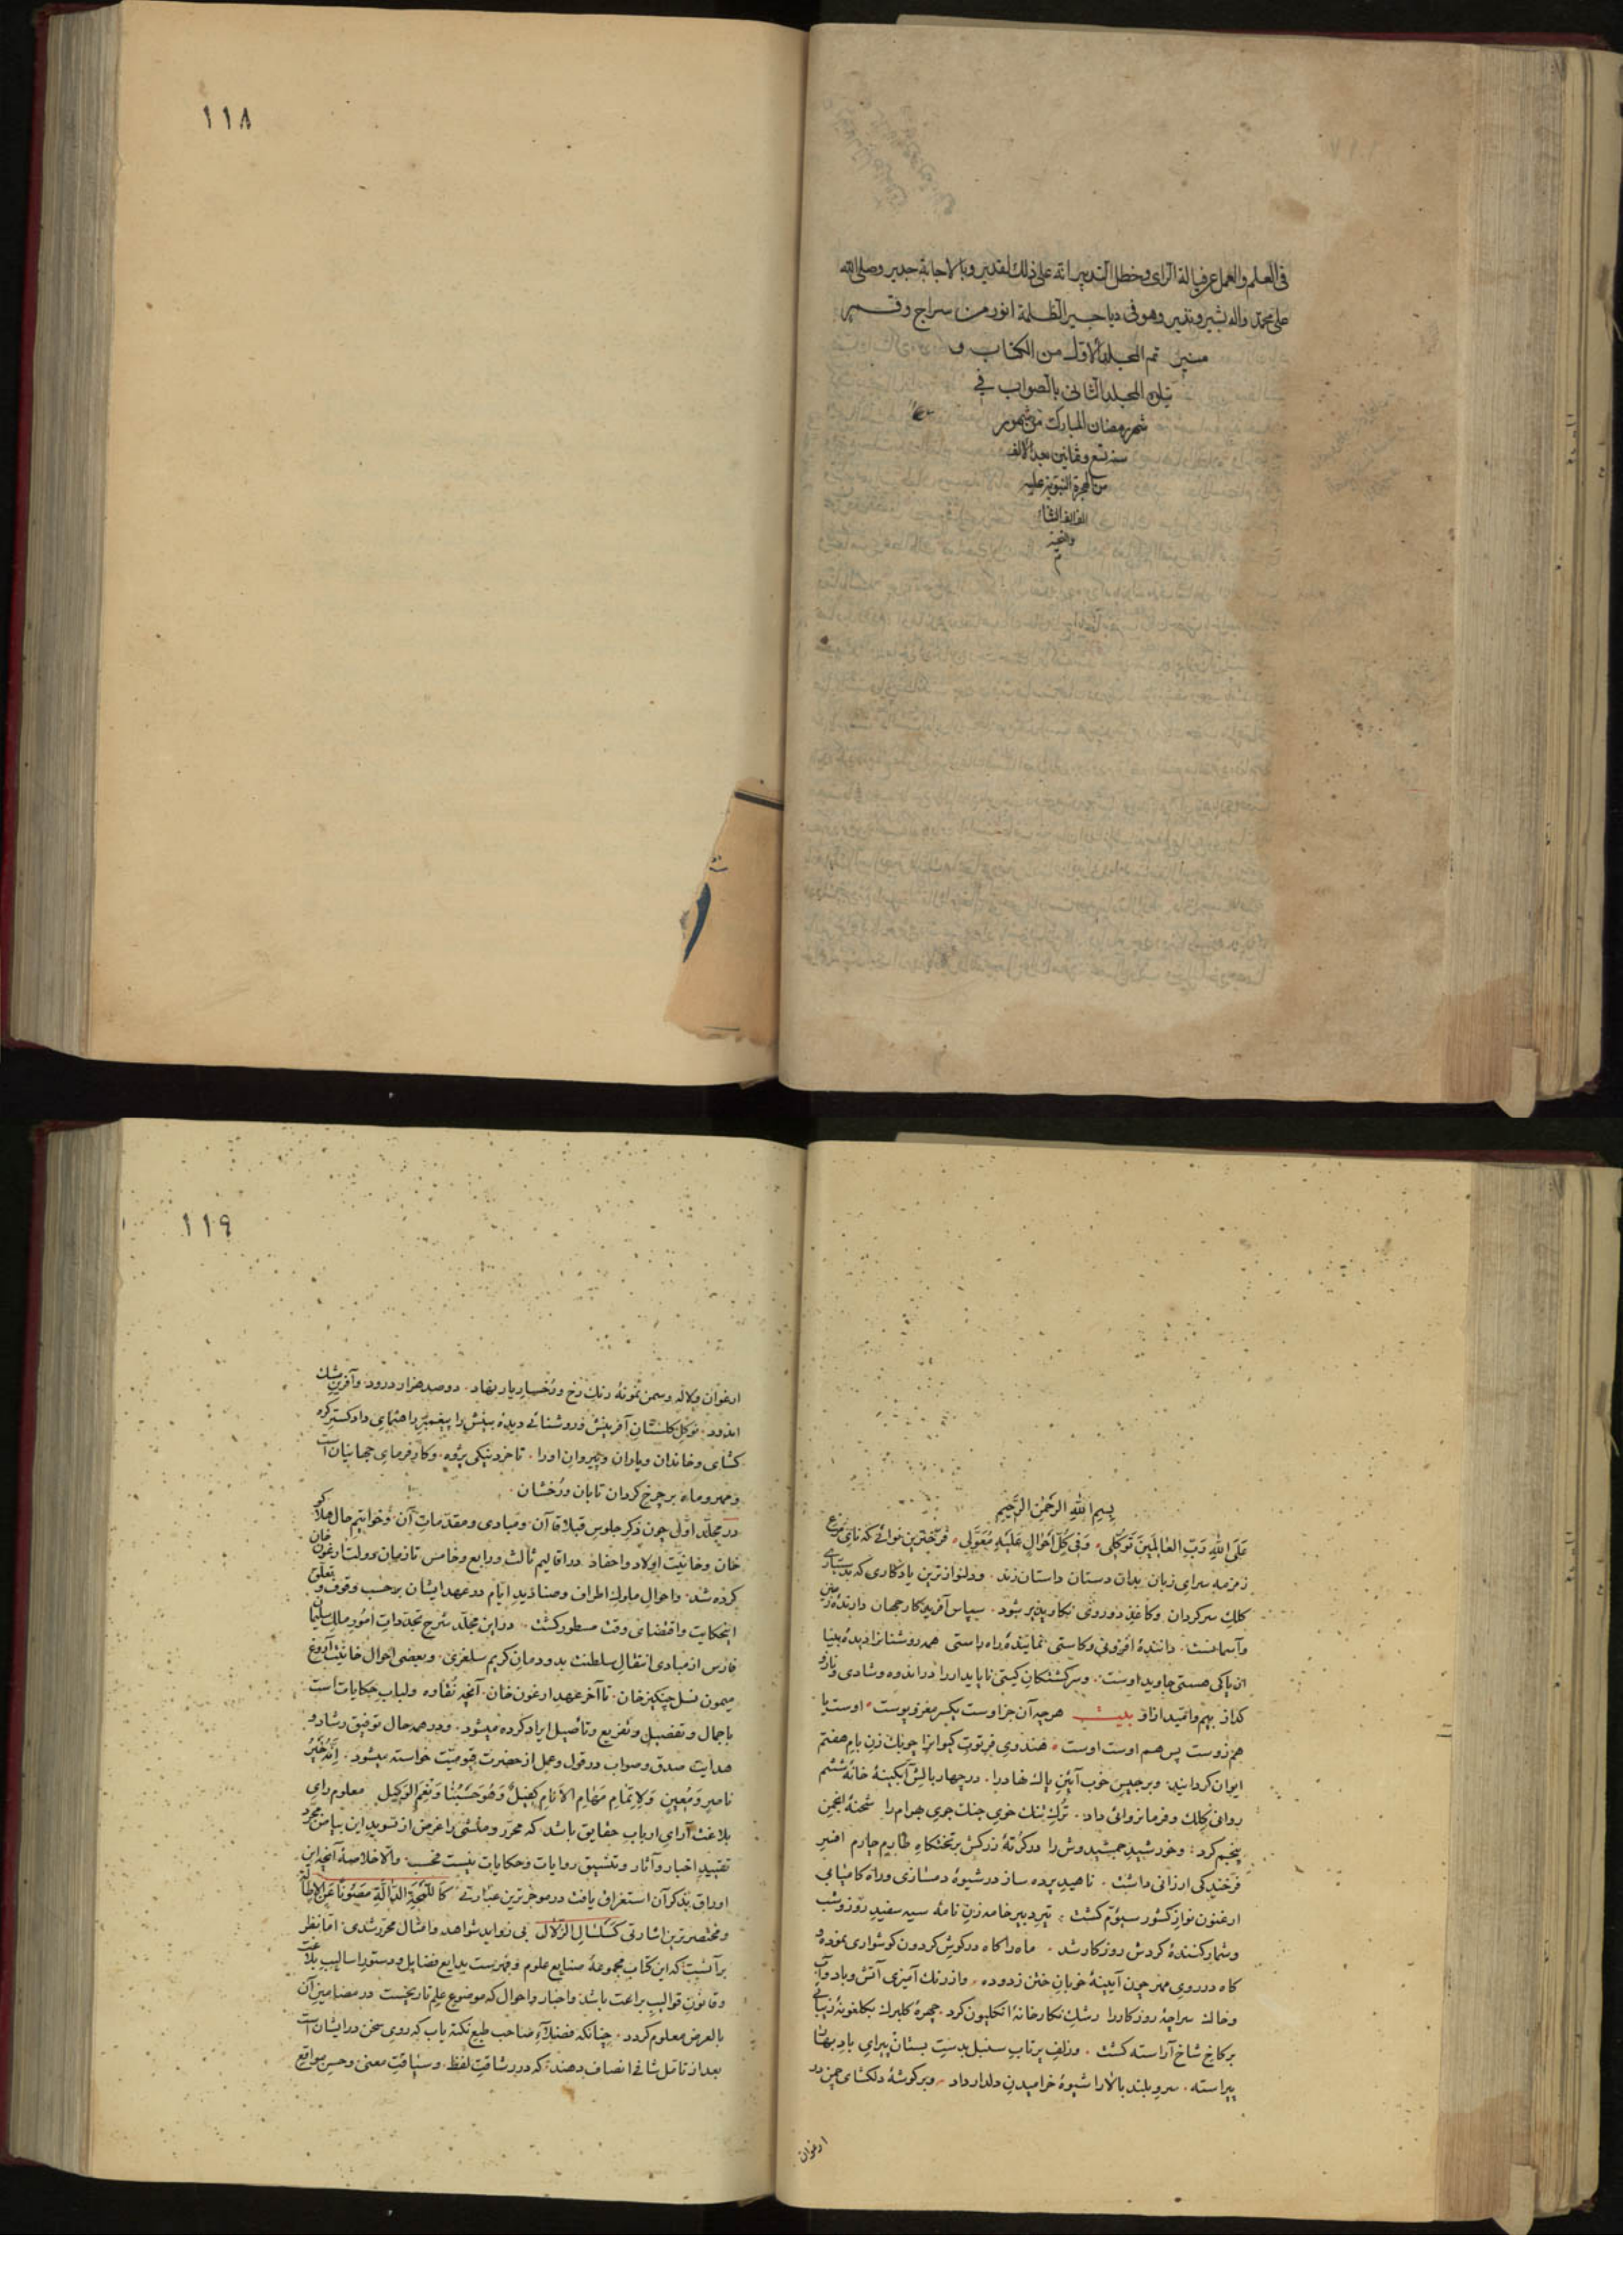 فی العلم والعمل عن فیالة الرای وخطل التدبیر انه علی ذلک لقدیر وبالاجابة جدیر وصلی الله
علی محمد واله بشیر ونذیر وهو فی دیاجیر الظلمة انور من سراج وقمر
منیر تم المجلد الاول من الکتاب و
یتلوه المجلد الثانی بالصواب فی
شهر رمضان المبارک من شهور
سنه تسع وثمانین بعد الالف
من الهجرة النبویة علیه
الف الف الثناء
والتحیة
م
۱۱۸
بسم الله الرحمن الرحیم
علی الله رب العالمین توکلی وفی کل احوال علیه معولی فرخترین نوائی که نای
زمزمه سرای زبان بدان دستان داستان زند ودلنوازترین یادکاری که
کلک سرکردان وکاغذ دوروی نکارپذیر شود سپاس آفریدکار جهان دارنده زمین
وآسمانست داننده افزونی وکاستی نماینده راه راستی همه روشنانرا دیده بینا
از پاکی هستی جاوید اوست وسرکشتکان کیتی ناپایدار را در اندوه وشادی وناز و
کداز بیم وامید ازو بیت هرچه آن جز اوست یکسر مغز و پوست اوست با
هم زوست پس هم اوست اوست هندوی فرتوت کیوانرا چوبک زن بام هفتم
ایوان کردانید وبرجیس خوب آیین پاک نهاد را در چهار بالش آبکینه خانه ششم
روانی کلک وفرمانروائی داد ترک تنک خوی جنک جوی بهرام را شحنه انجمن
پنجم کرد وخورشید جمشیدوش را در کرته زرکش بر تختکاه طارم چارم افسر
فرخندکی ارزانی داشت ناهید پرده ساز در شیوه دمسازی وراه کامیابی
ارغنون نواز کشور سیوم کشت تیر دبیر خامه زن نامه سیه سفید روز وشب
وشمار کننده کردش روزکار شد ماه را کاه در کوش کردون کوشواری نموده و
کاه در روی مهر چون آیینه خوبان ختن زدوده واز رنک آمیزی آتش وباد وآب
وخاک سراچه روزکار را رشک نکارخانه انکلیون کرد چهره کلبرک بکلغونه زیبائی
بر کاخ شاخ آراسته کشت وزلف پرتاب سنبل بدست بستان پیرای باد بهاری
پیراسته سرو بلند بالا را شیوه خرامیدن دلدار داد وبر کوشه دلکشای چمن در
ارغوان
۱۱۹
ارغوان ولاله وسمن نمونه رنک رخ ورخسار یار نهاد دوصد هزار درود وآفرین مشک
اندود نوکل کلستان آفرینش وروشنائی دیده بینش را پیغمبر راهنمای دادکستر کره
کشای وخاندان ویاران وپیروان اورا تا خرد نیکی پژوه وکارفرمای جهانیان است
ومهر وماه بر چرخ کردان تابان ورخشان
در مجلد اولی چون ذکر جلوس قبلا قاآن ومبادی ومقدمات آن وخواتیم حال هلاکو
خان وخانیت اولاد واحفاد در اقالیم ثالث ورابع وخامس تا زمان دولت ارغون خان
کرده شد واحوال ملوک اطراف وصنادید ایام در عهد ایشان برحسب وقوف وتعلق
اینحکایت واقتضای وقت مسطور کشت در این مجلد شرح تجددات امور ملک سلیمان
فارس از مبادی انتقال سلطنت بدودمان کریم سلغری وبعضی احوال خانیت آروغ
میمون نسل چنکیزخان تا آخر عهد ارغون خان آنچه نقاوه ولباب حکایات است
باجمال وتفصیل وتفریع وتاصیل ایراد کرده میشود ودر همه حال توفیق رشاد و
هدایت صدق وصواب در قول وعمل از حضرت قیومیت خواسته میشود انه خیر
ناصر ومعین ولاتمام مهام الانام کفیل وهو حسبنا ونعم الوکیل معلوم رای
بلاغت آرای ارباب حقایق باشد که محرر ومنشی را غرض از تسوید این بیاض مجرد
تقیید اخبار وآثار وتنسیق روایات وحکایات نیست فحسب والا خلاصه آنچه این
اوراق بذکر آن استغراق یافت در موجزترین عبارتی کاللمحة الدالة مصونا عن الاطالة
ومختصرترین اشارتی کسلسال الزلال بی زواید شواهد وامثال محرر شدی اما نظر
بر آنست که این کتاب مجموعه صنایع علوم وفهرست بدایع فضایل ودستور اسالیب بلاغت
وقانون قوالب براعت باشد واخبار واحوال که موضوع علم تاریخست در مضامین آن
بالعرض معلوم کردد چنانکه فضلاء صاحب طبع نکته یاب که روی سخن در ایشان است
بعد از تامل شافی انصاف دهند که در رشاقت لفظ وسیاقت معنی وحسن مواقع